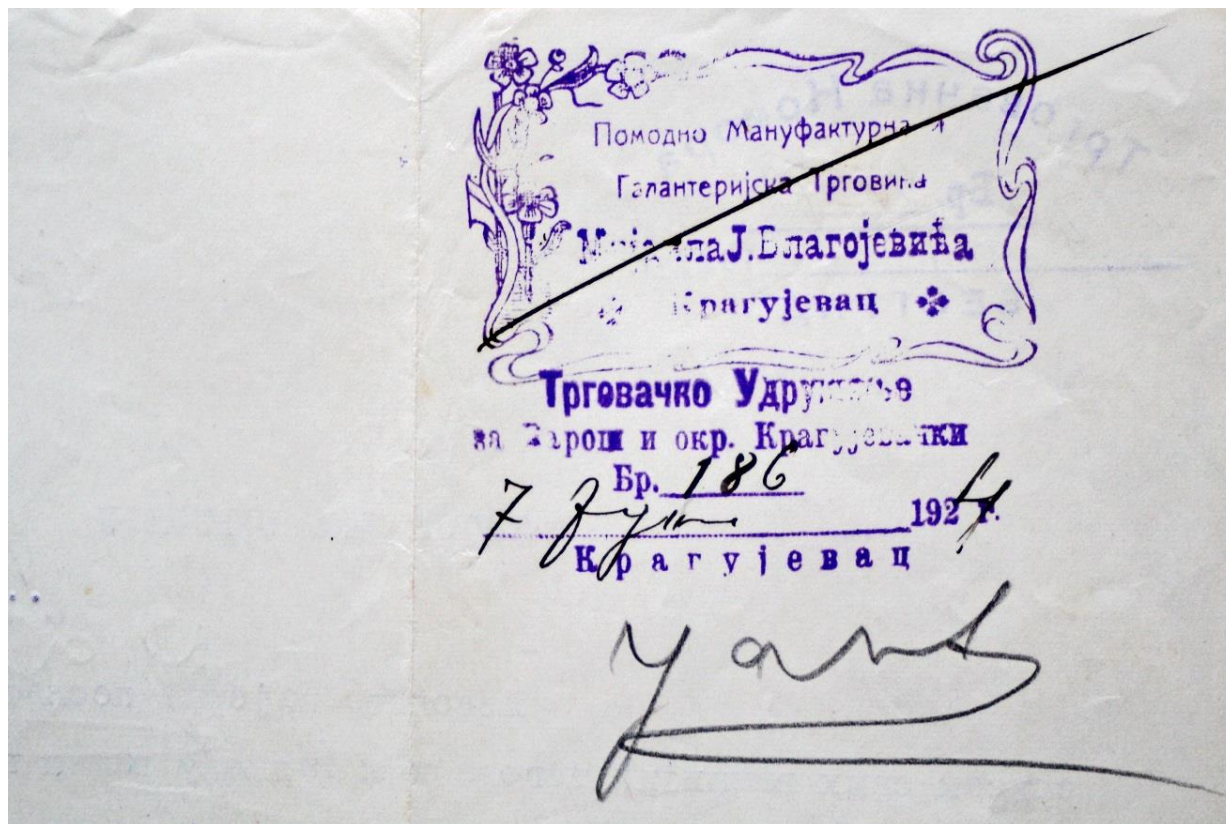 Помодно Мануфактурна и
Галантеријска Трговина
Мијаила Ј. Благојевића
Крагујевац
Трговачко Удружење
за Варош и окр. Крагујевачки
Бр. 186
7 Јуни 1924 г.
Крагујевац